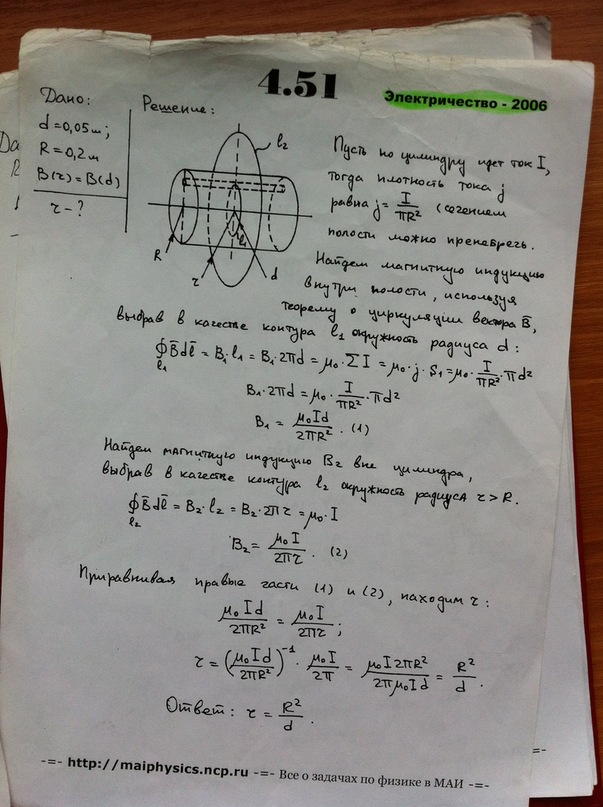 4.51
Электричество - 2006
Дано:
d = 0,05 м;
R = 0,2 м
B(r) = B(d)
r - ?
Решение:
l₂
l₁
R
r
d
Пусть по цилиндру идет ток I,
тогда плотность тока j
равна j = I/πR² (сечением
полости можно пренебречь.
Найдем магнитную индукцию
внутри полости, используя
теорему о циркуляции вектора B̄,
выбрав в качестве контура l₁ окружность радиуса d:
∮B̄dl̄ = B₁·l₁ = B₁·2πd = μ₀·ΣI = μ₀·j·S₁ = μ₀·I/πR²·πd²
l₁
B₁·2πd = μ₀·I/πR²·πd²
B₁ = μ₀Id/2πR². (1)
Найдем магнитную индукцию B₂ вне цилиндра,
выбрав в качестве контура l₂ окружность радиуса r > R.
∮B̄dl̄ = B₂·l₂ = B₂·2πr = μ₀·I
l₂
B₂ = μ₀I/2πr. (2)
Приравнивая правые части (1) и (2), находим r:
μ₀Id/2πR² = μ₀I/2πr;
r = (μ₀Id/2πR²)⁻¹·μ₀I/2π = μ₀I2πR²/2πμ₀Id = R²/d.
Ответ: r = R²/d.
-=- http://maiphysics.ncp.ru -=- Все о задачах по физике в МАИ -=-